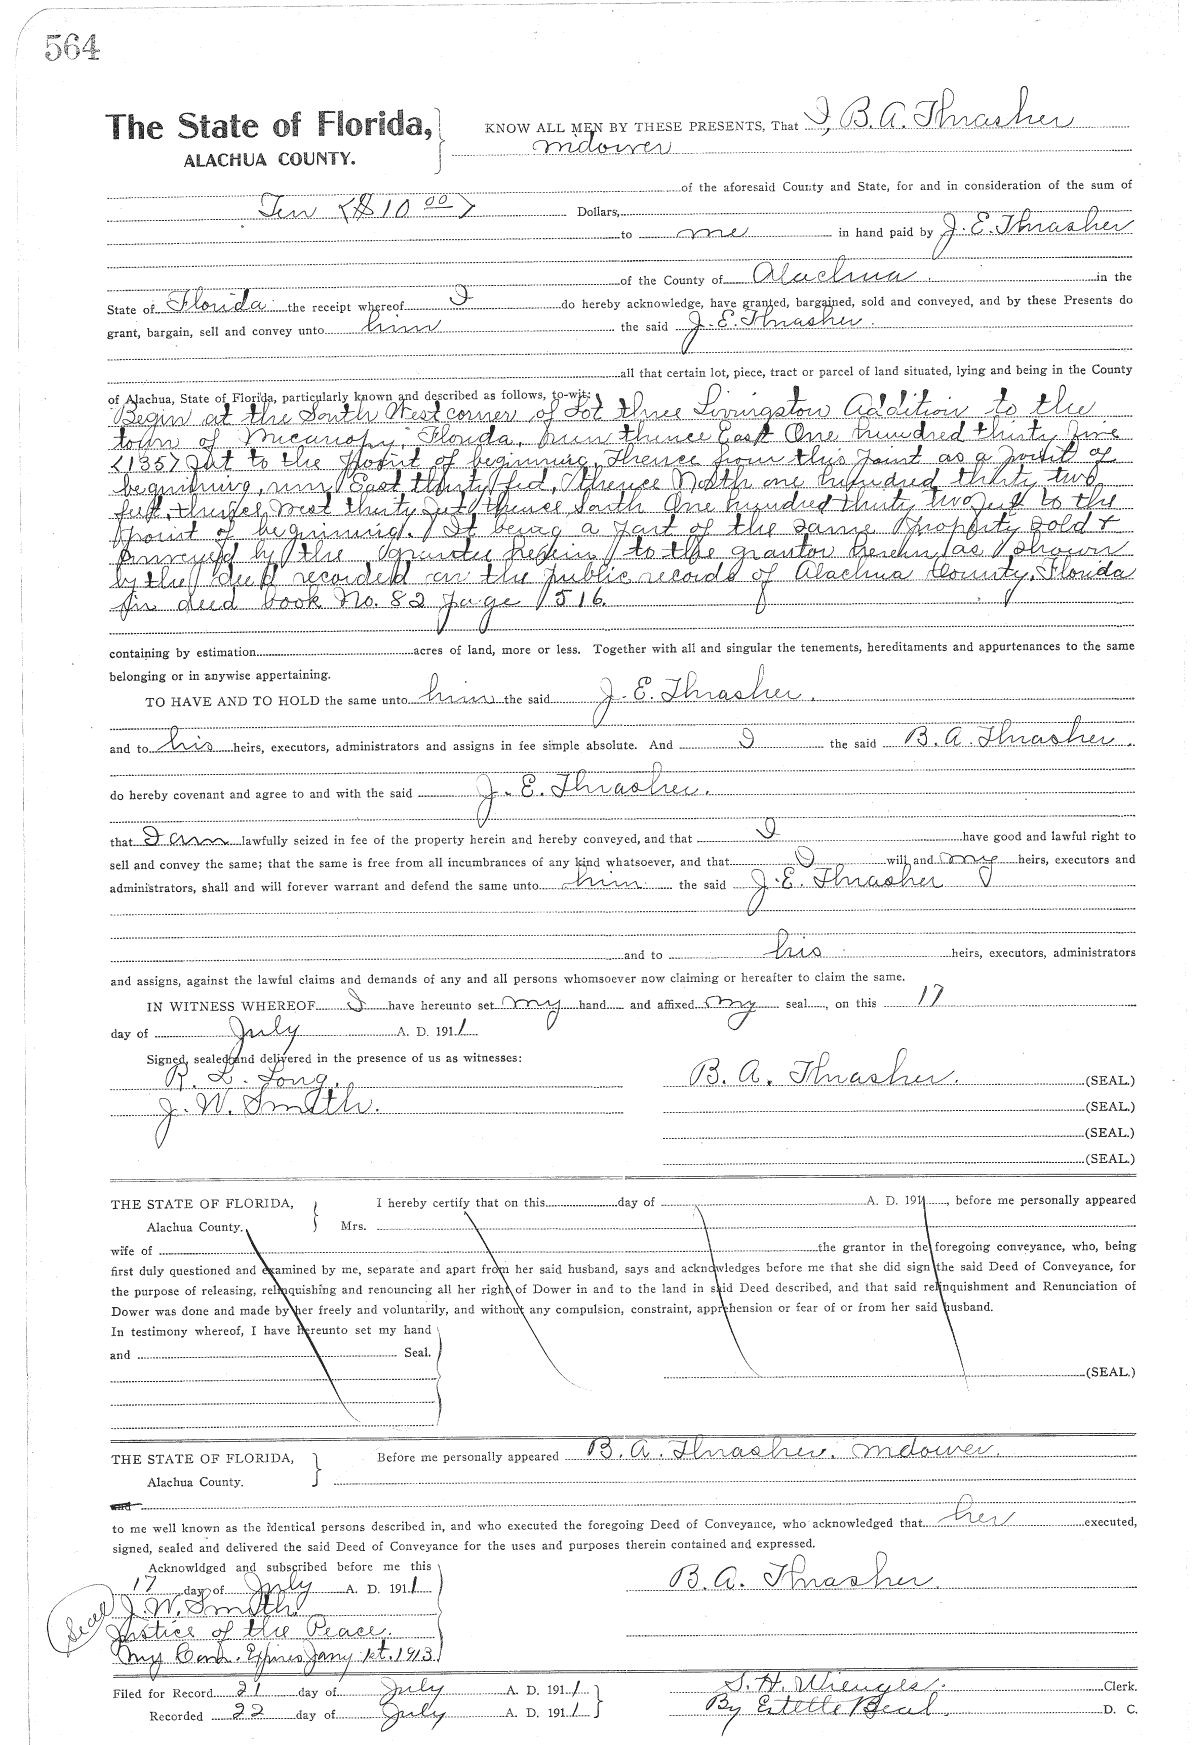 564
The State of Florida,
ALACHUA COUNTY.
KNOW ALL MEN BY THESE PRESENTS, That I, B. A. Thrasher
widower
of the aforesaid County and State, for and in consideration of the sum of
Ten <$10 00> Dollars,
to me in hand paid by J. E. Thrasher
of the County of Alachua in the
State of Florida the receipt whereof I do hereby acknowledge, have granted, bargained, sold and conveyed, and by these Presents do
grant, bargain, sell and convey unto him the said J. E. Thrasher.
all that certain lot, piece, tract or parcel of land situated, lying and being in the County
of Alachua, State of Florida, particularly known and described as follows, to-wit:
Begin at the South West corner of Lot three Livingston Addition to the
town of Micanopy, Florida, run thence East One hundred thirty five
<135> feet to the point of beginning, Thence from this point as a point of
beginning, run East thirty feet, thence North one hundred thirty two
feet, thence West thirty feet thence South One hundred thirty two feet to the
point of beginning. It being a part of the same property sold &
conveyed by the grantee herein to the grantor herein as shown
by the deed recorded on the public records of Alachua County, Florida
in deed book No. 82 page 516.
containing by estimation acres of land, more or less. Together with all and singular the tenements, hereditaments and appurtenances to the same
belonging or in anywise appertaining.
TO HAVE AND TO HOLD the same unto him the said J. E. Thrasher.
and to his heirs, executors, administrators and assigns in fee simple absolute. And I the said B. A. Thrasher.
do hereby covenant and agree to and with the said J. E. Thrasher.
that I am lawfully seized in fee of the property herein and hereby conveyed, and that I have good and lawful right to
sell and convey the same; that the same is free from all incumbrances of any kind whatsoever, and that I will and my heirs, executors and
administrators, shall and will forever warrant and defend the same unto him the said J. E. Thrasher
and to his heirs, executors, administrators
and assigns, against the lawful claims and demands of any and all persons whomsoever now claiming or hereafter to claim the same.
IN WITNESS WHEREOF I have hereunto set my hand and affixed my seal, on this 17
day of July A. D. 1911
Signed, sealed and delivered in the presence of us as witnesses:
R. L. Long. B. A. Thrasher. (SEAL.)
J. W. Smith. (SEAL.)
(SEAL.)
(SEAL.)
THE STATE OF FLORIDA, I hereby certify that on this day of A. D. 191 , before me personally appeared
Alachua County. Mrs.
wife of the grantor in the foregoing conveyance, who, being
first duly questioned and examined by me, separate and apart from her said husband, says and acknowledges before me that she did sign the said Deed of Conveyance, for
the purpose of releasing, relinquishing and renouncing all her right of Dower in and to the land in said Deed described, and that said relinquishment and Renunciation of
Dower was done and made by her freely and voluntarily, and without any compulsion, constraint, apprehension or fear of or from her said husband.
In testimony whereof, I have hereunto set my hand
and Seal.
(SEAL.)
THE STATE OF FLORIDA, Before me personally appeared B. A. Thrasher. widower.
Alachua County.
and
to me well known as the identical persons described in, and who executed the foregoing Deed of Conveyance, who acknowledged that her executed,
signed, sealed and delivered the said Deed of Conveyance for the uses and purposes therein contained and expressed.
Acknowldged and subscribed before me this
17 day of July A. D. 1911 B. A. Thrasher.
J. W. Smith.
Seal Justice of the Peace.
My Com. Expires Jany 1st. 1913.
Filed for Record 21 day of July A. D. 1911 S. H. Wienges. Clerk.
Recorded 22 day of July A. D. 1911 By Estelle Beal. D. C.